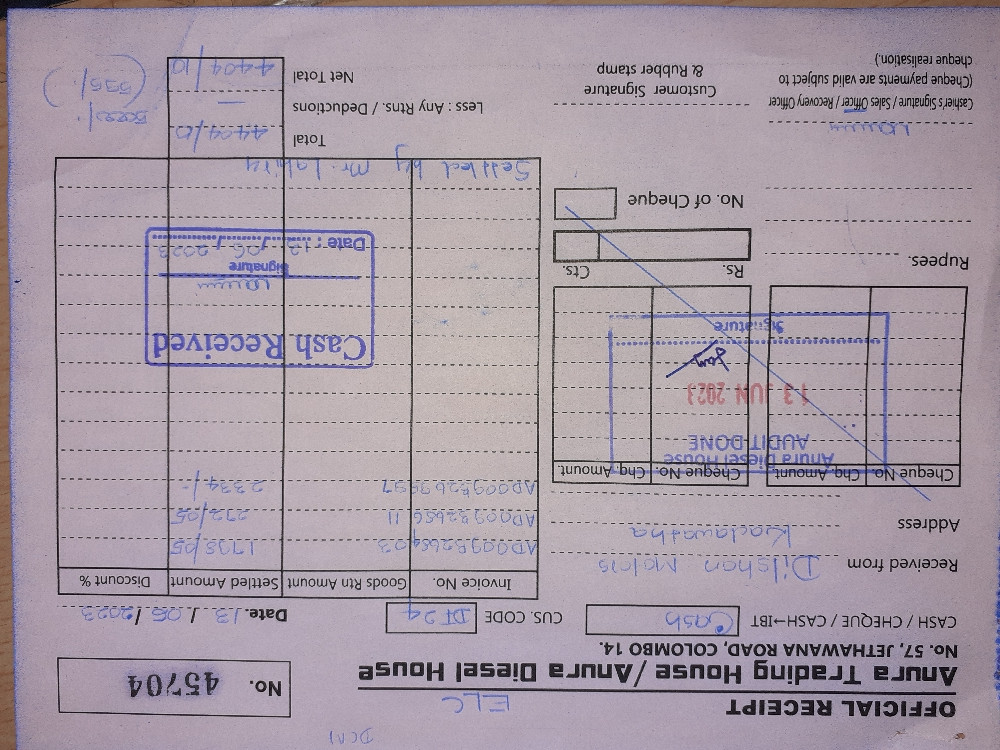 D(N)
OFFICIAL RECEIPT
ELC
Anura Trading House / Anura Diesel House
No. 57, JETHAWANA ROAD, COLOMBO 14.
No. 45704
CASH / CHEQUE / CASH→IBT Cash
CUS. CODE DI24
Date. 13 / 06 / 2023
Received from Dilshan Motors
Address Kadawatha
Cheque No. Chq. Amount Cheque No. Chq. Amount.
Anura Diesel House
AUDIT DONE
13 JUN 2023
Signature
Rupees.
Rs. Cts.
No. of Cheque
Cashier's Signature / Sales Officer / Recovery Officer
(Cheque payments are valid subject to
cheque realisation.)
Customer Signature
& Rubber stamp
Invoice No. Goods Rtn Amount Settled Amount Discount %
1798/05
AD0093265611 272/05
AD0095269997 2334/-
Cash Received
Signature
Date : 13 / 06 / 2023
Settled by Mr. Lahiru
Total 4404/10
Less : Any Rtns. / Deductions —
Net Total 4404/10
5000/-
(595/-)